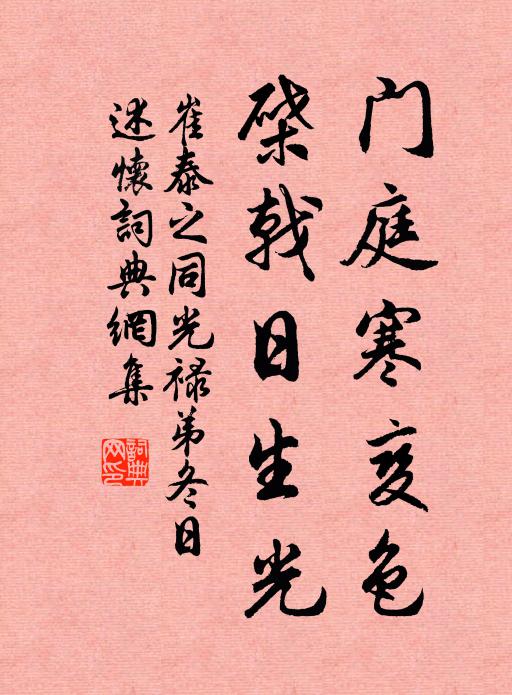 门庭寒变色
棨戟日生光
崔泰之同光禄弟冬日
述懷詞典網集
詞典
网印